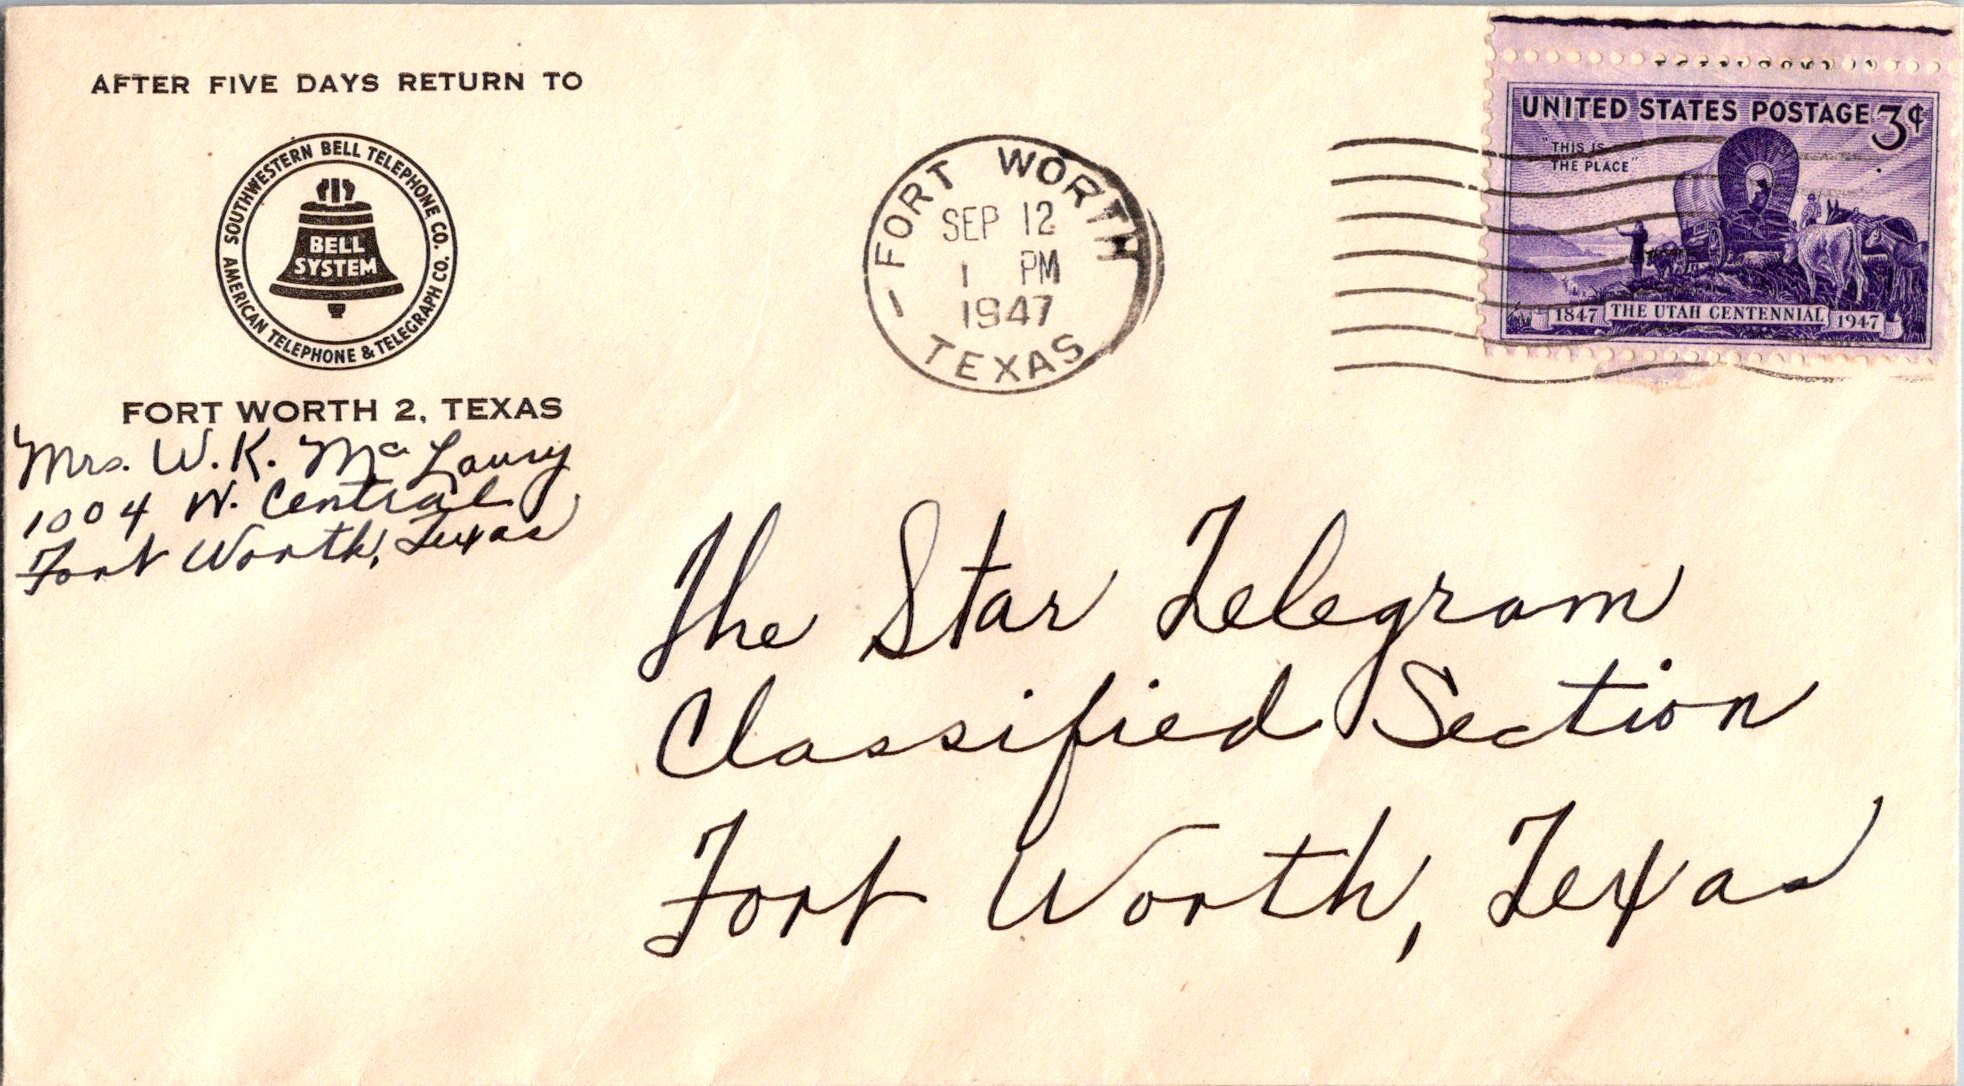 AFTER FIVE DAYS RETURN TO
SOUTHWESTERN BELL TELEPHONE CO.
AMERICAN TELEPHONE & TELEGRAPH CO.
BELL
SYSTEM
FORT WORTH 2, TEXAS
Mrs. W. K. McLaury
1004 W. Central
Fort Worth, Texas
FORT WORTH
SEP 12
1 PM
1947
TEXAS
UNITED STATES POSTAGE 3¢
"THIS IS
THE PLACE"
1847 THE UTAH CENTENNIAL 1947
The Star Telegram
Classified Section
Fort Worth, Texas